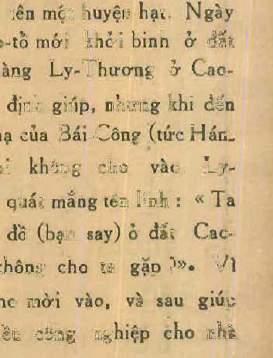 một huyện hạt. Ngày
-tổ mới khởi binh ở đất
àng Ly-Thương ở Cao-
định giúp, nhưng khi đến
hạ của Bái-Công (tức Hán_
không cho vào Ly-
quát mắng tên lính : « Ta
đồ (bạn say) ở đất Cao-
không cho ta gặp ?». Vì
mời vào, và sau giúp
công nghiệp cho nhà